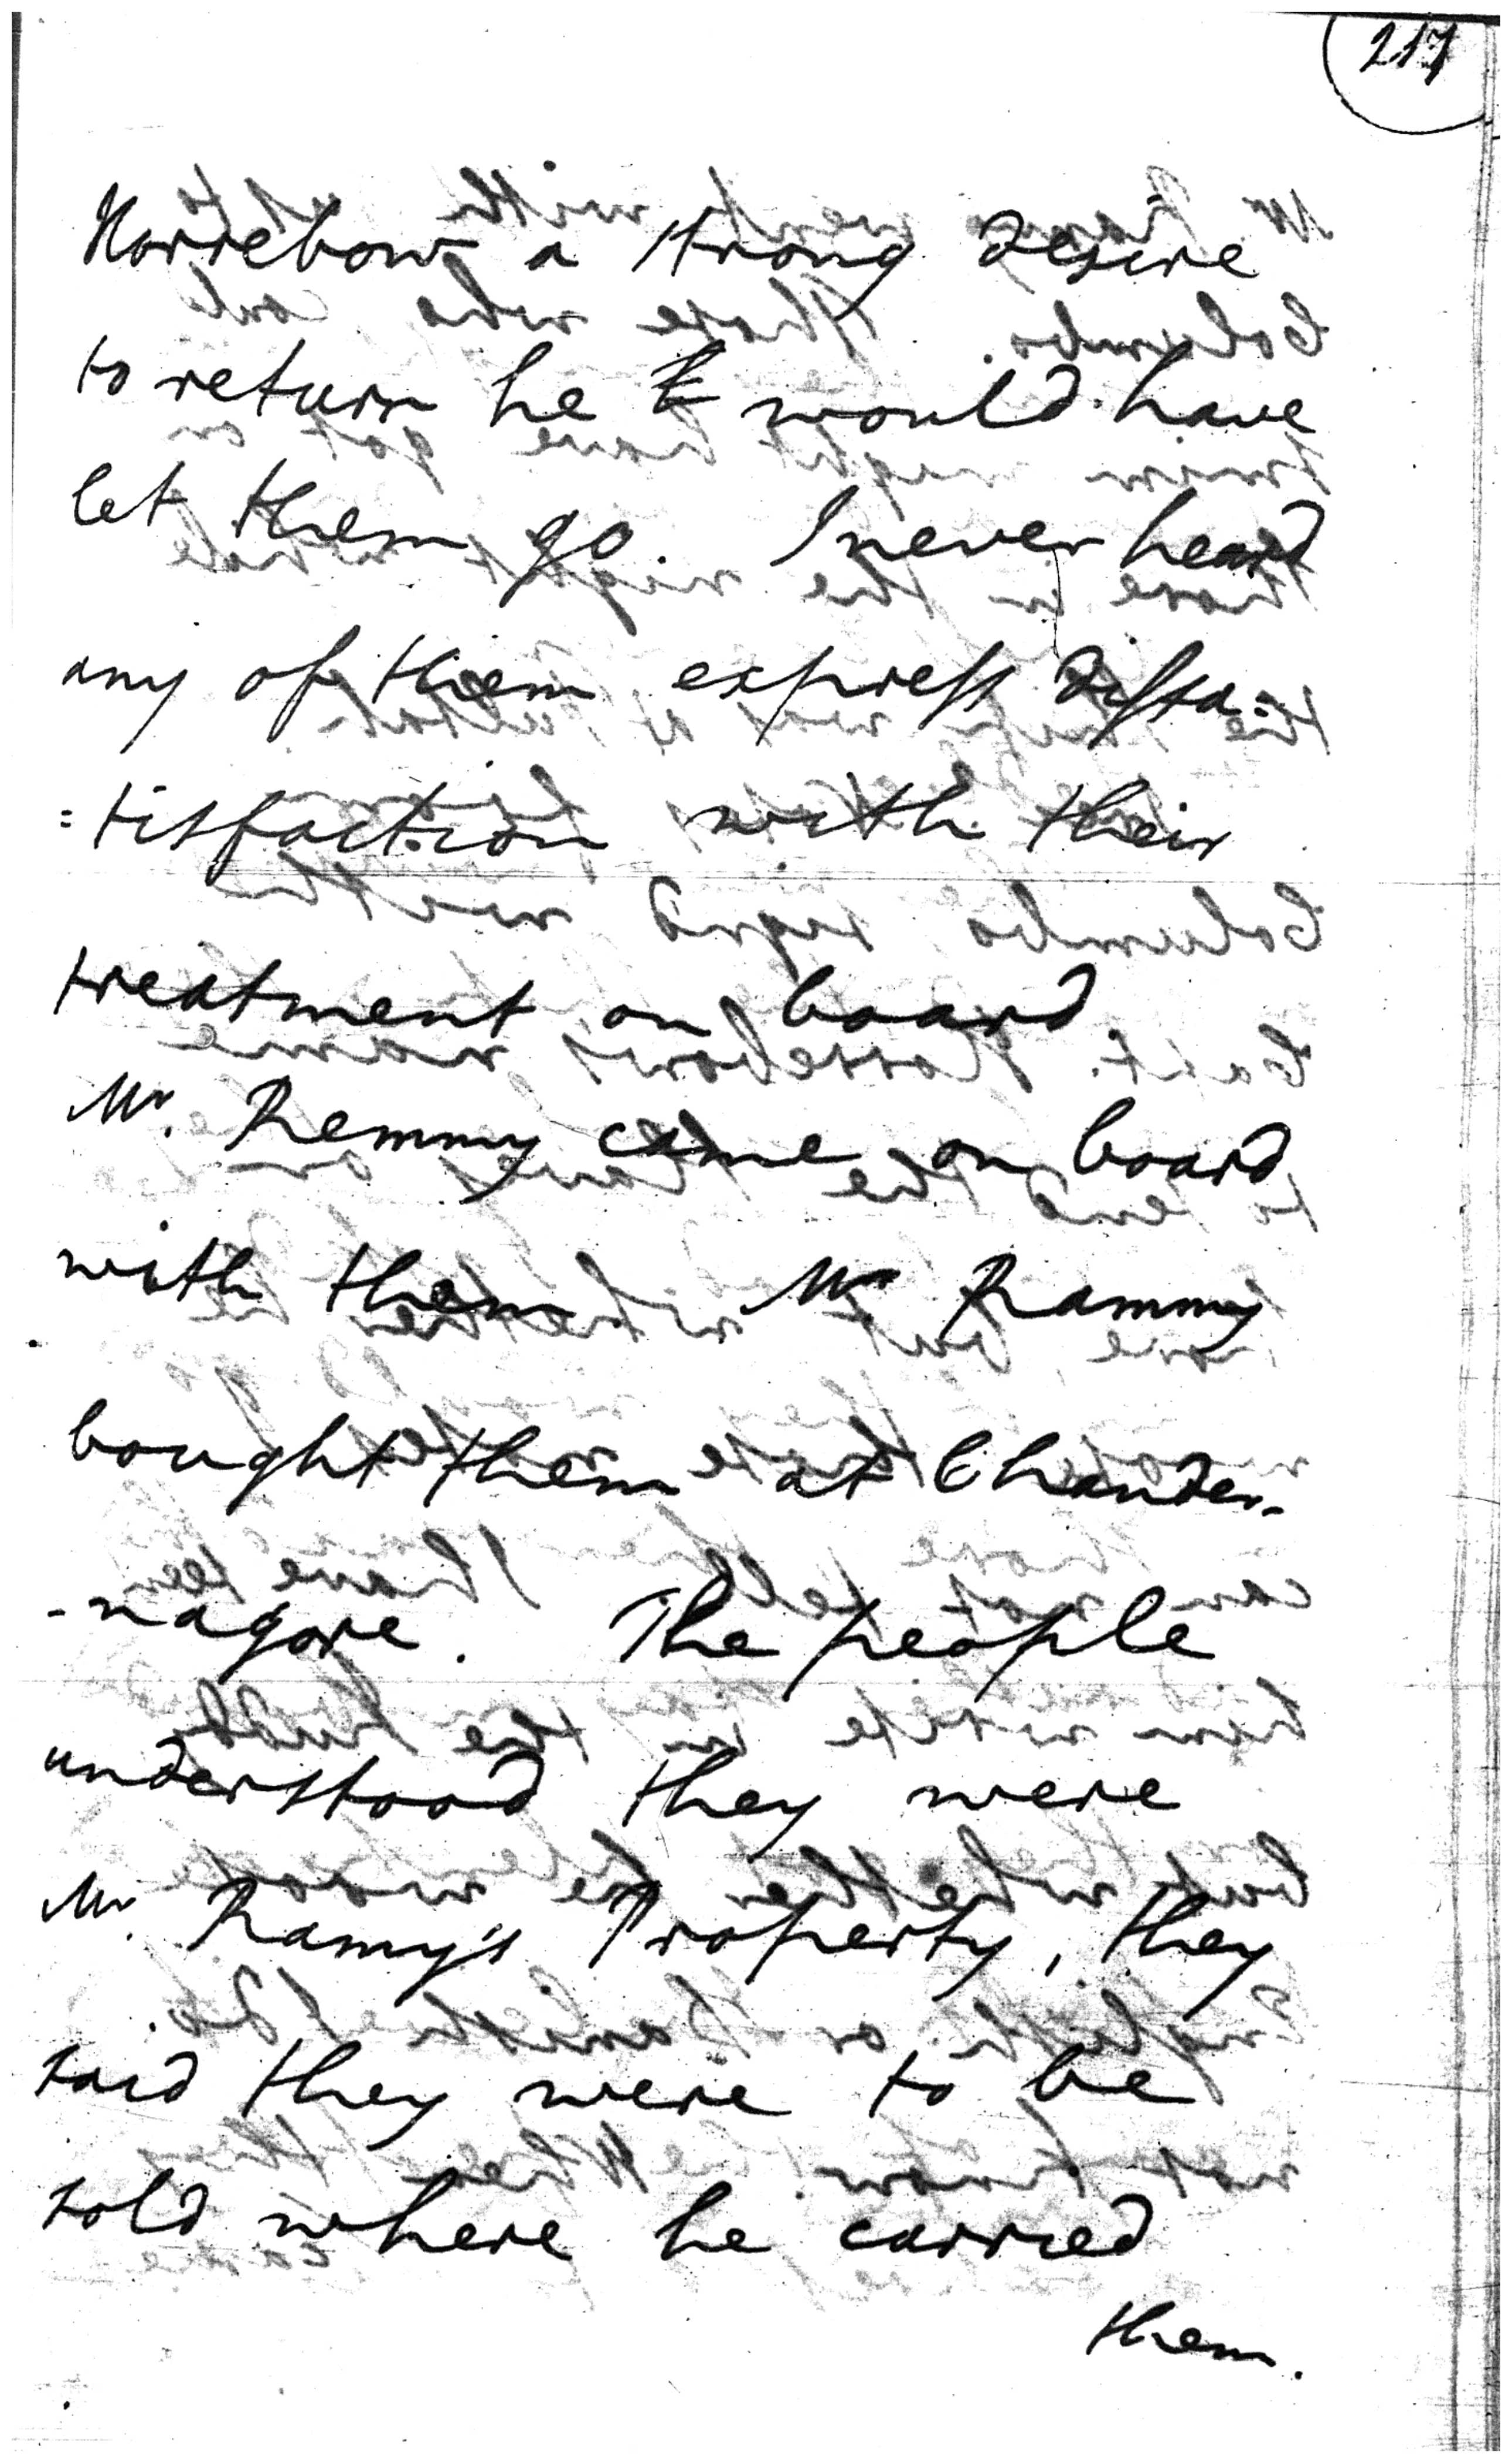 217
Horrebow a strong desire
to return he would have
let them go. I never heard
any of them express dissa=
=tisfaction with their
treatment on board.
Mr. Remmy came on board
with them Mr Rammy
bought them at Chander-
-nagore. The people
understood they were
Mr. Ramy's Property, they
said they were to be
sold where he carried
them.